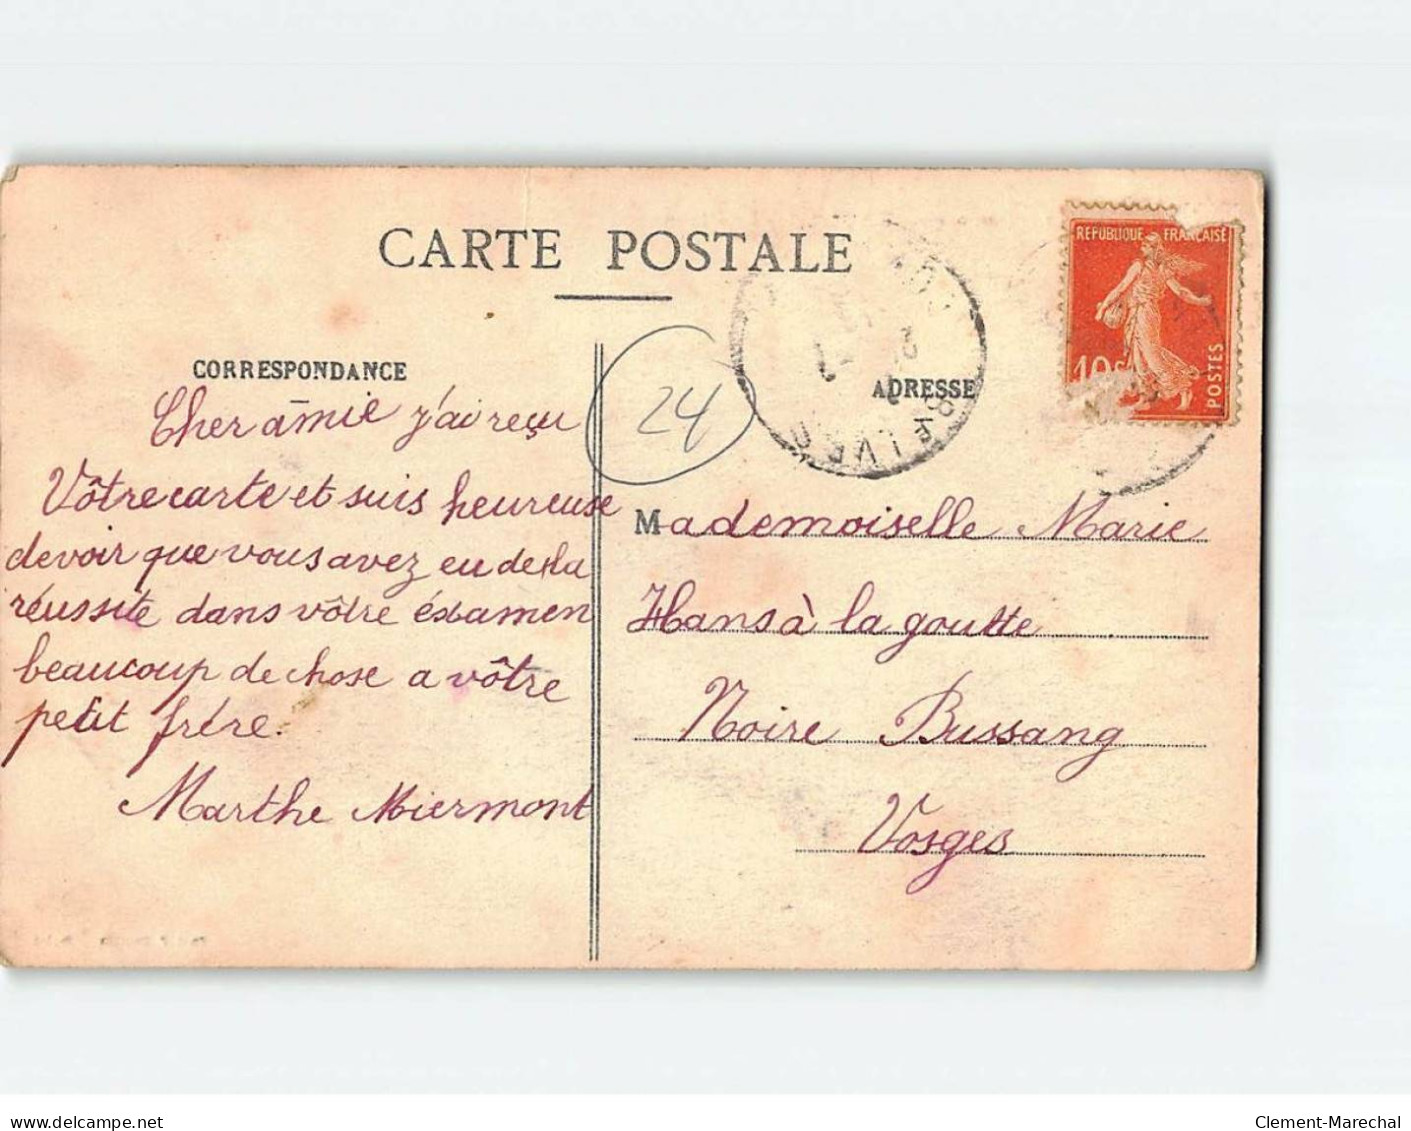 CARTE POSTALE
REPUBLIQUE FRANÇAISE
10c
POSTES
CORRESPONDANCE
ADRESSE
24
BELVES
Cher amie j'ai reçu
Vôtre carte et suis heureuse
devoir que vous avez eu de la
réussite dans vôtre éxamen
beaucoup de chose a vôtre
petit frére.
Marthe Miermont
Mademoiselle Marie
Hans à la goutte
Noire Bussang
Vosges
www.delcampe.net
Clement-Marechal